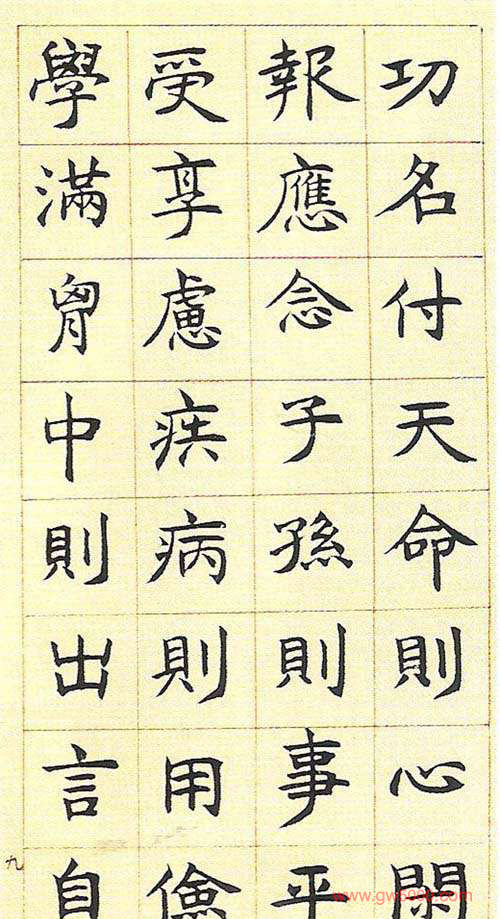 功名付天命則心閒
報應念子孫則事平
受享慮疾病則用儉
學滿胷中則出言自
九